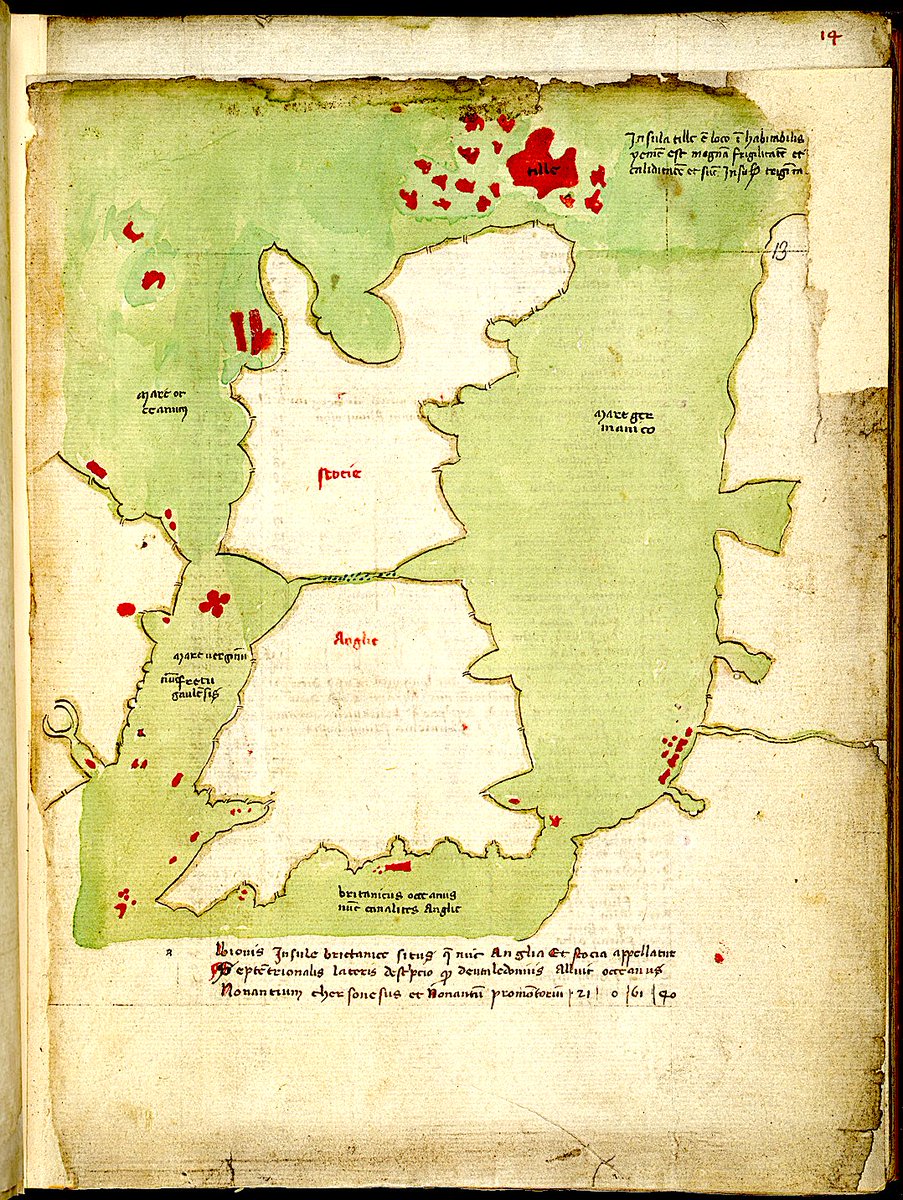 14
Insula tille ē loco ī habitabilis
magnā frigilitatē et
caliditatē et
tille
13
mare oc
ceanum
mare ger
manico
scocie
Anglie
mare verginiū
nūc fretū
gaulesis
britanicus occeanus
nūc canalites Anglie
Albionis Insule brictanice situs q̄ nūc Anglia Et scocia appellatur
Septētrionalis lateris descⁱpcio deucaledonius Alluit occeanus
Nouantium chersonesus et Nouantū promōtoriū | 21 | 0 | 61 | 40